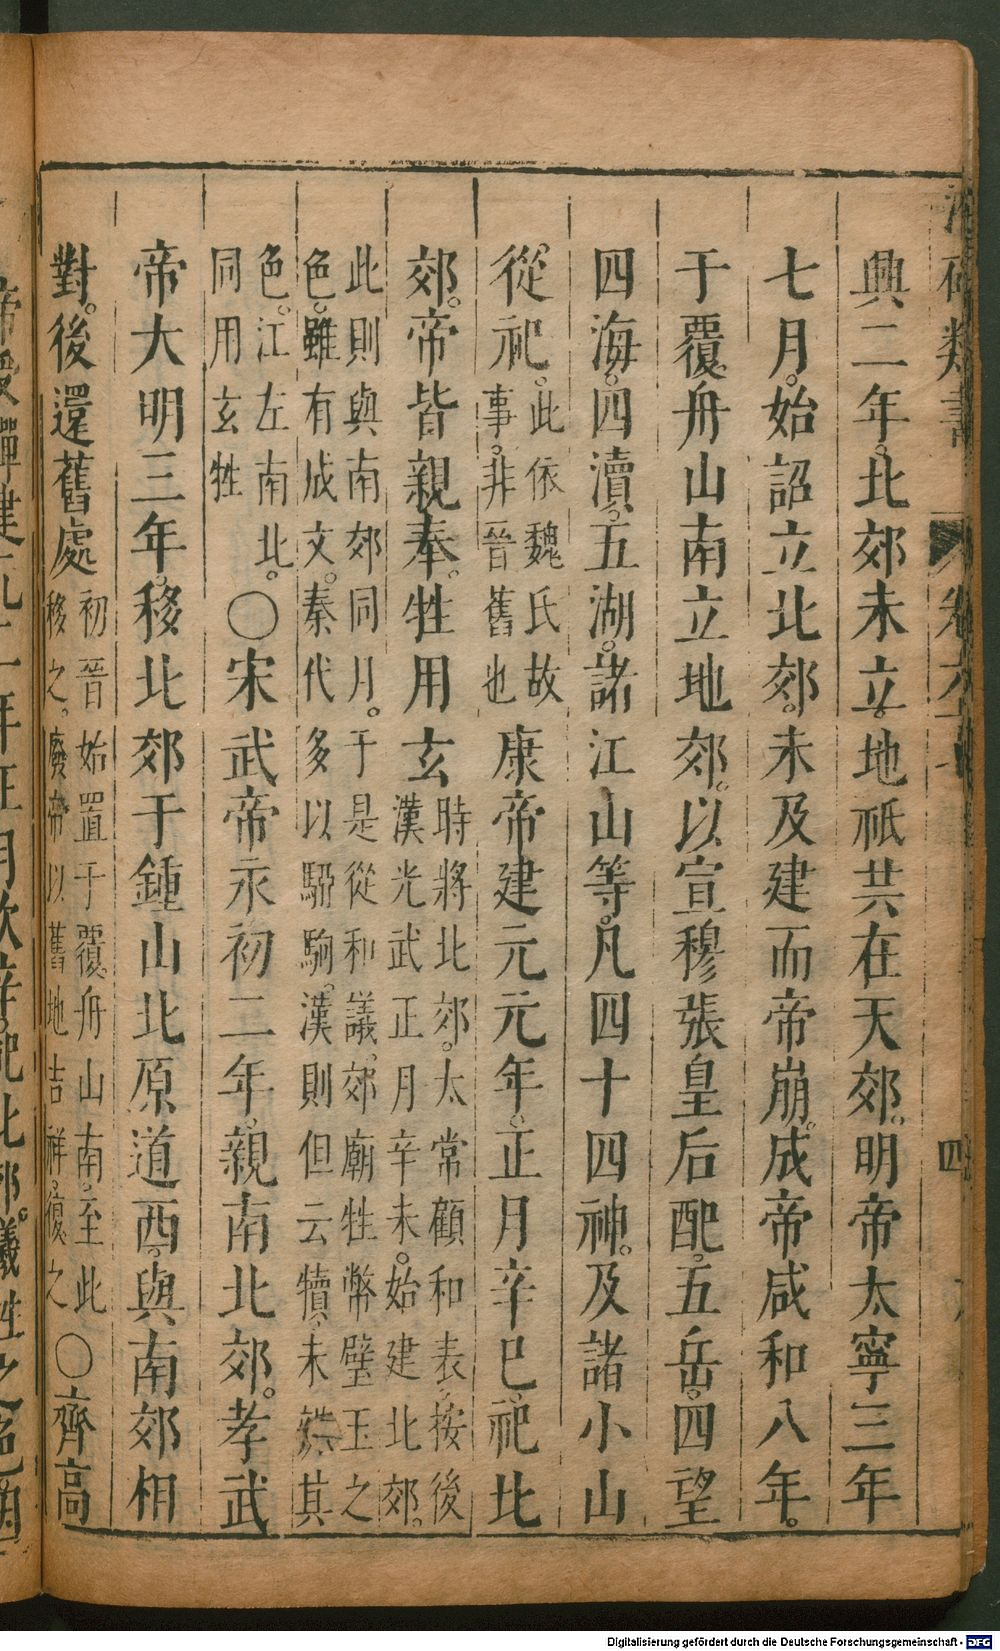 興二年。北郊未立。地祇共在天郊。明帝太寧三年
七月。始詔立北郊。未及建而帝崩。成帝咸和八年。
于覆舟山南立地郊。以宣穆張皇后配。五岳。四望
四海。四瀆。五湖。諸江山等。凡四十四神。及諸小山
從祀。此依魏氏故事。非晉舊也康帝建元元年。正月辛巳。祀北
郊。帝皆親奉。牲用玄時將北郊。太常顧和表。按後漢光武正月辛未。始建北郊。
此則與南郊同月。于是從和議。郊廟牲幣璧玉之色。雖有成文。秦代多以騮駒。漢則但云犢。未其
色。江左南北。同用玄牲〇宋武帝永初二年。親南北郊。孝武
帝大明三年。移北郊于鍾山北原道西。與南郊相
對。後還舊處初晉始置于覆舟山南。至此移之。廢帝以舊地吉祥。復之〇齊高
類書
卷六十
四
Digitalisierung gefördert durch die Deutsche Forschungsgemeinschaft - DFG